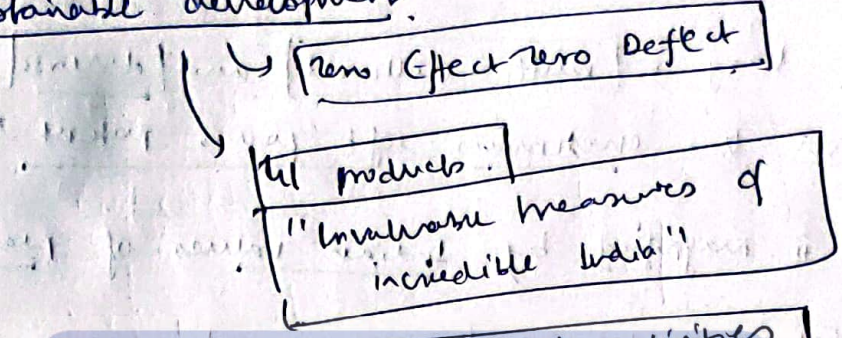 sustainable development.
Zero Effect Zero Defect
GI products.
"Invaluable treasures of
incredible India"